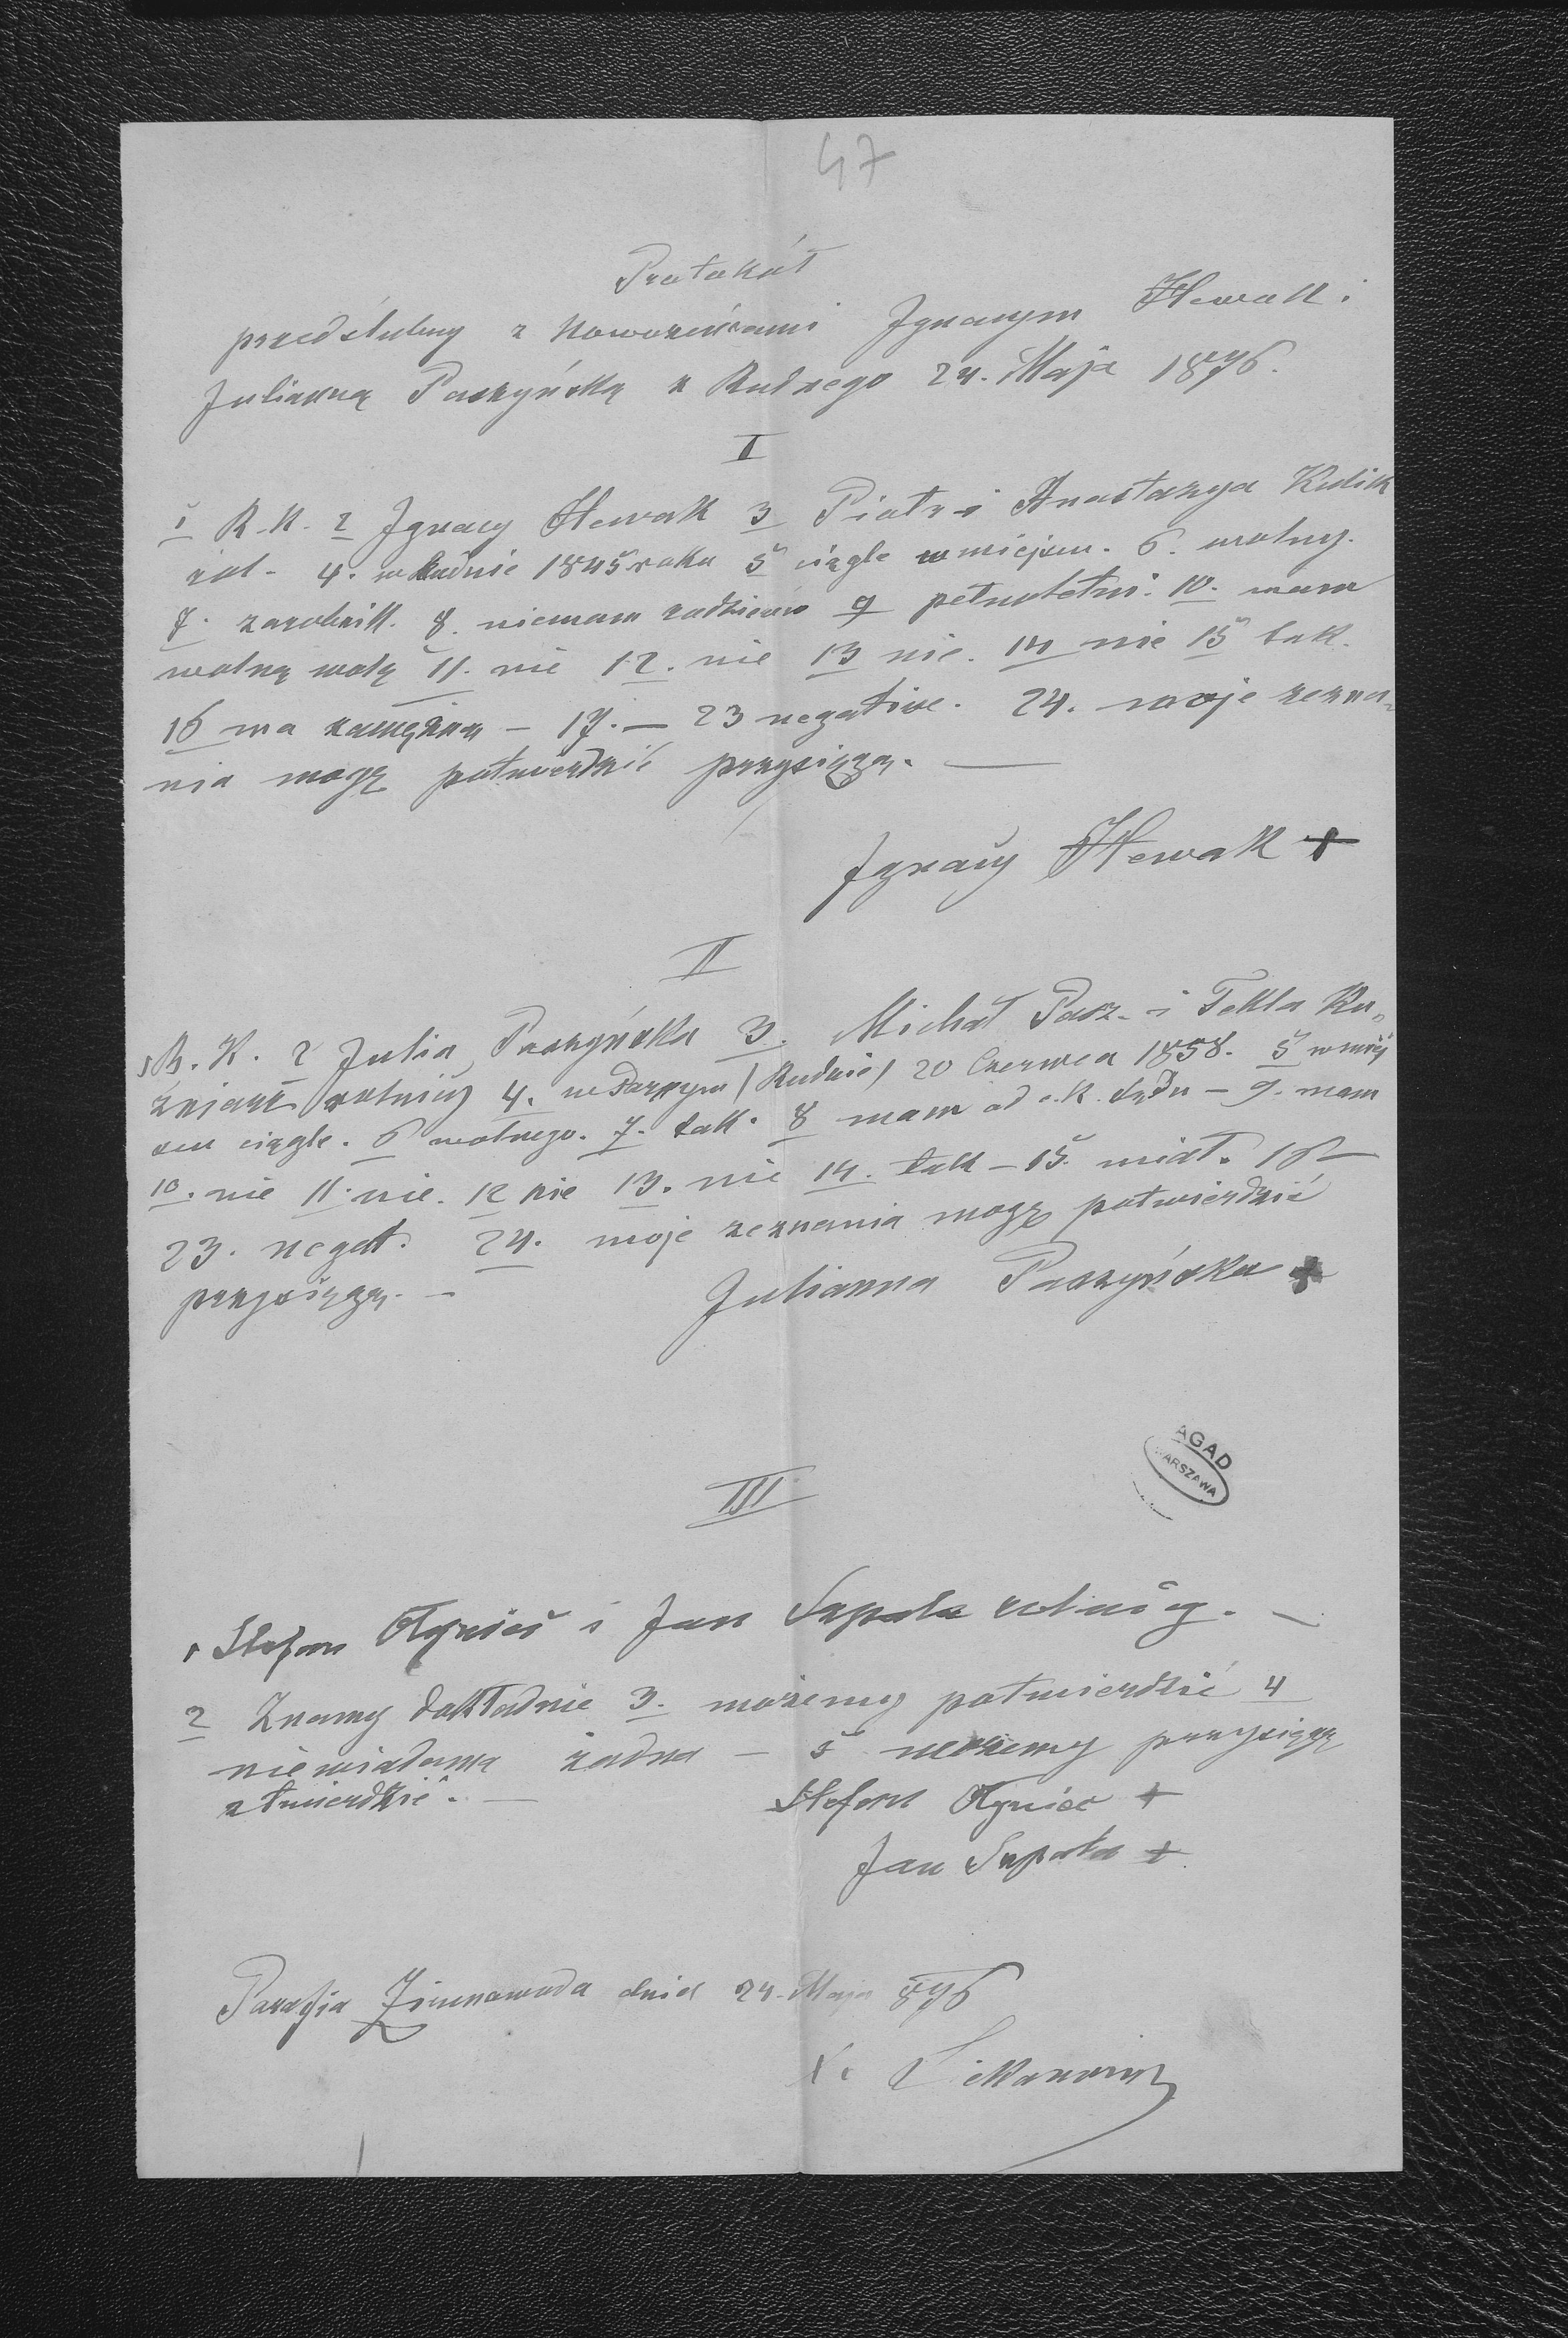 47
Protokół
przedślubny z Nowożeńcami Ignacym Hewak i
Julianną Paszyńską z Rudnego 24. Maja 1876.
I
1 R. K. 2 Ignacy Hewak 3 Piotr i Anastazya Kulik
rol. 4. w Rudnie 1845 roku 5 ciągle w miejscu. 6. wolny.
7. zarobnik. 8. niemam rodziców 9 pełnoletni. 10. mam
wolną wolę 11. nie 12. nie 13 nie. 14 nie 15 tak.
16 ma zamężna – 17. – 23 negative. 24. moje zezna-
nia mogę potwierdzić przysięgą. —
Ignacy Hewak +
II
1 R. K. 2 Julia Paszyńska 3. Michał Pasz. i Tekla
rolnicy 4. (Rudnie) 20 Czerwca 1858. 5 w miej
scu ciągle. 6 wolnego. 7. tak. 8 mam od c. k. Sądu – 9. mam
10. nie 11. nie. 12 nie 13. nie 14. tak – 15. miał. 16 –
23. negat. 24. moje zeznania mogę potwierdzić
przysięgą. –
Julianna Paszyńska +
AGAD
WARSZAWA
III
1 Stefan i Jan rolnicy. —
2 Znamy dokładnie 3. możemy potwierdzić 4
niewiadoma żadna – 5 możemy przysięgą
stwierdzić. —
Stefan +
Jan +
Parafia Zimnawoda dnia 24. Maja 876